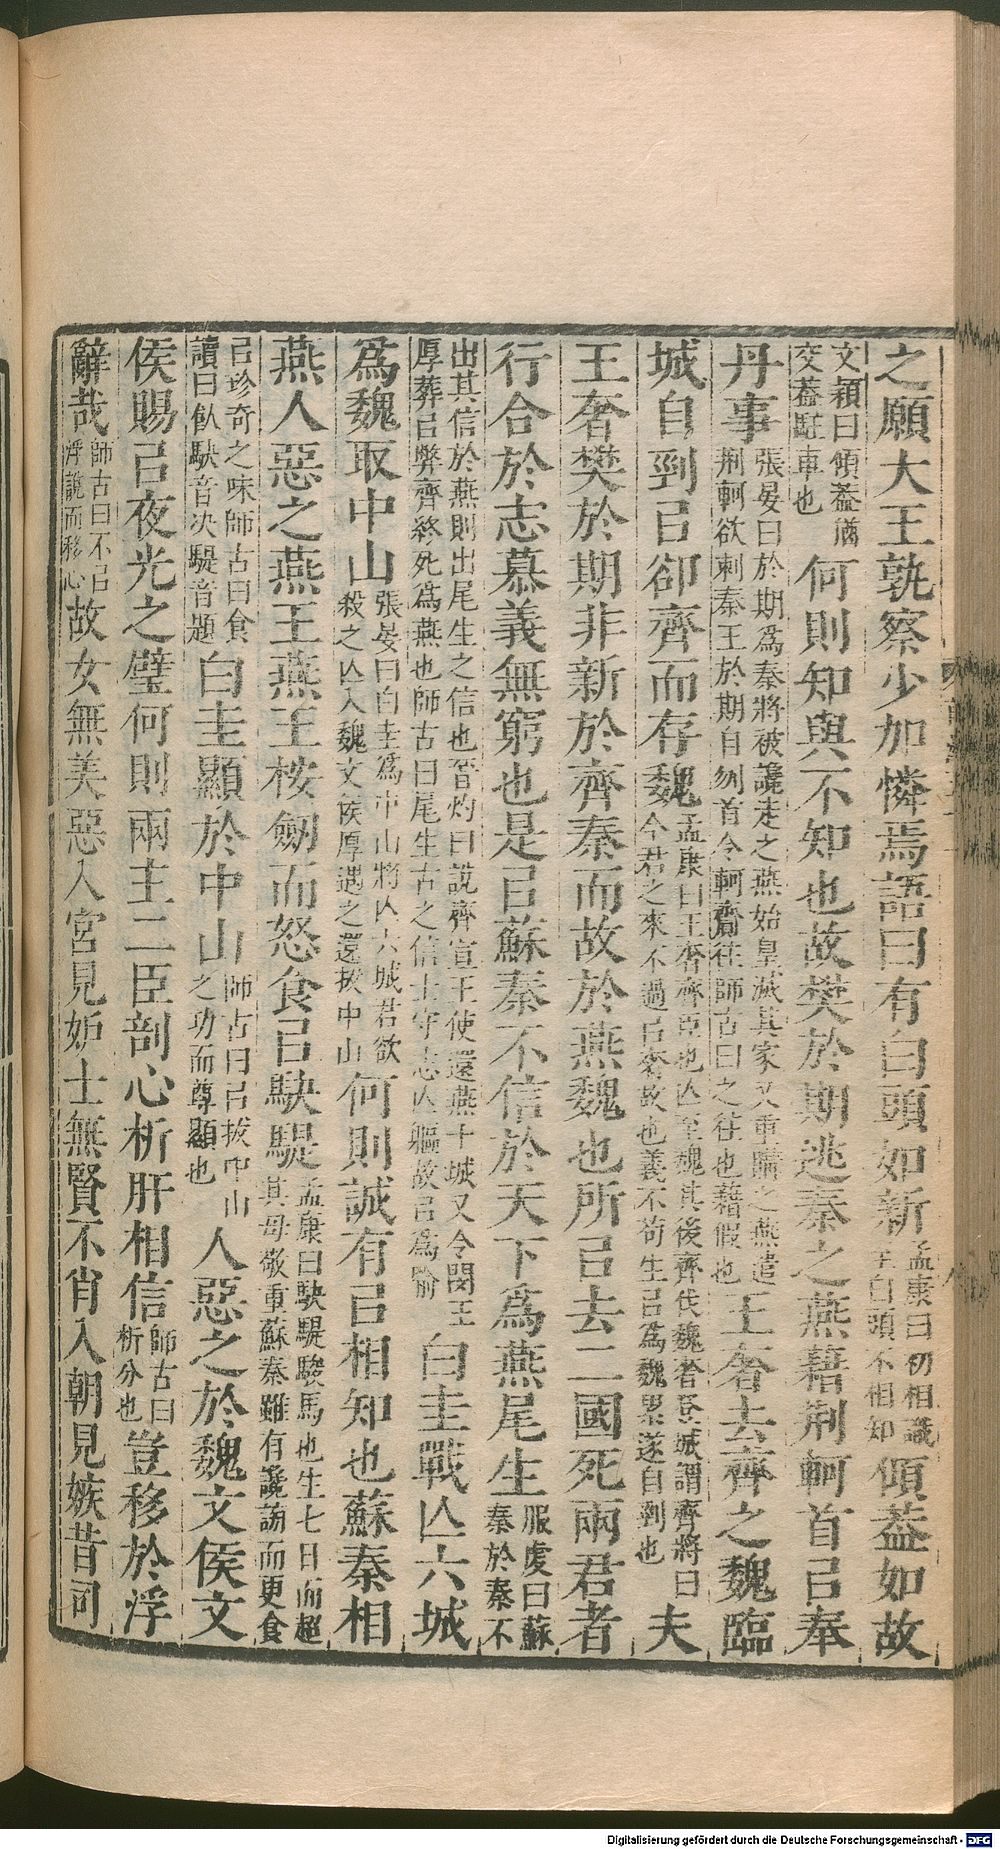 之願大王孰察少加憐焉語曰有白頭如新孟康曰初相識至白頭不相知傾葢如故
文穎曰傾葢猶交葢駐車也何則知與不知也故樊於期逃秦之燕藉荆軻首㠯奉
丹事張晏曰於期爲秦將被讒走之燕始皇滅其家又重購之燕遣荆軻欲刺秦王於期自刎首令軻齎往師古曰之往也藉假也王奢去齊之魏臨
城自剄㠯卻齊而存魏孟康曰王奢齊臣也亾至魏其後齊伐魏奢登城謂齊將曰今君之來不過㠯奢故也義不苟生㠯爲魏累遂自剄也夫
王奢樊於期非新於齊秦而故於燕魏也所㠯去二國死兩君者
行合於志慕義無窮也是㠯蘇秦不信於天下爲燕尾生服虔曰蘇秦於秦不
出其信於燕則出尾生之信也晋灼曰說齊宣王使還燕十城又令閔王厚葬㠯弊齊終死爲燕也師古曰尾生古之信士守志亾軀故㠯爲喻白圭戰亾六城
爲魏取中山張晏曰白圭爲中山將亾六城君欲殺之亾入魏文侯厚遇之還拔中山何則誠有㠯相知也蘇秦相
燕人惡之燕王燕王按劒而怒食㠯駃騠孟康曰駃騠駿馬也生七日而超其母敬重蘇秦雖有讒謗而更食
㠯珍奇之味師古曰食讀曰飤駃音决騠音題白圭顯於中山師古曰㠯拔中山之功而尊顯也人惡之於魏文侯文
侯賜㠯夜光之璧何則兩主二臣剖心析肝相信師古曰析分也豈移於浮
辭哉師古曰不㠯浮說而移心故女無美惡入宮見妒士無賢不肖入朝見嫉昔司
Digitalisierung gefördert durch die Deutsche Forschungsgemeinschaft - DFG